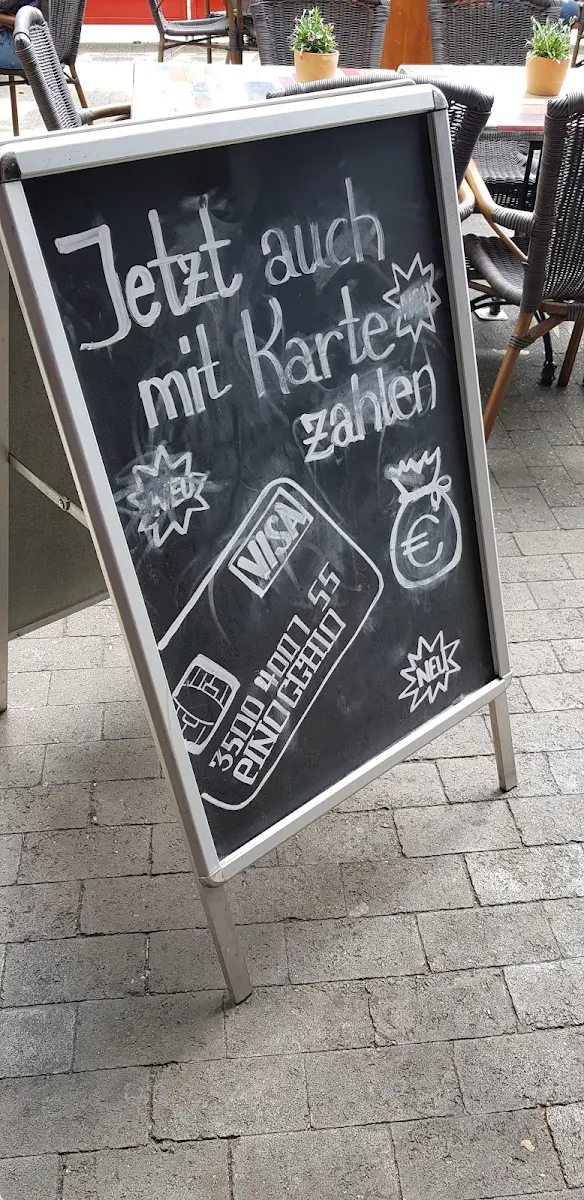 Jetzt auch
mit Karte
zahlen
NEU
VISA
€
3500 4007 55
PINOCCHIO
NEU